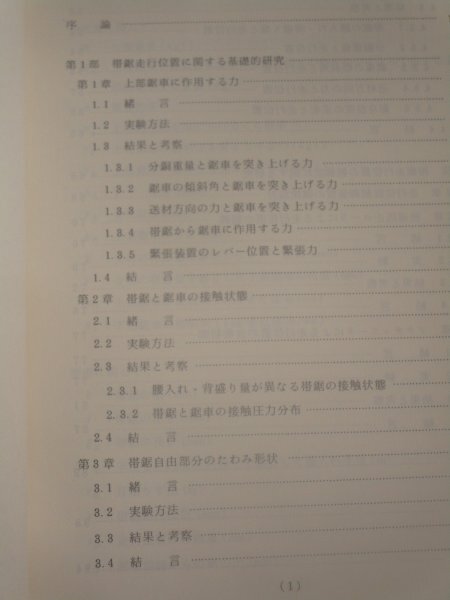 序　論
第1部　帯鋸走行位置に関する基礎的研究
第1章　上部鋸車に作用する力
1.1　緒　言
1.2　実験方法
1.3　結果と考察
1.3.1　分銅重量と鋸車を突き上げる力
1.3.2　鋸車の傾斜角と鋸車を突き上げる力
1.3.3　送材方向の力と鋸車を突き上げる力
1.3.4　帯鋸から鋸車に作用する力
1.3.5　緊張装置のレバー位置と緊張力
1.4　結　言
第2章　帯鋸と鋸車の接触状態
2.1　緒　言
2.2　実験方法
2.3　結果と考察
2.3.1　腰入れ・背盛り量が異なる帯鋸の接触状態
2.3.2　帯鋸と鋸車の接触圧力分布
2.4　結　言
第3章　帯鋸自由部分のたわみ形状
3.1　緒　言
3.2　実験方法
3.3　結果と考察
3.4　結　言
(1)